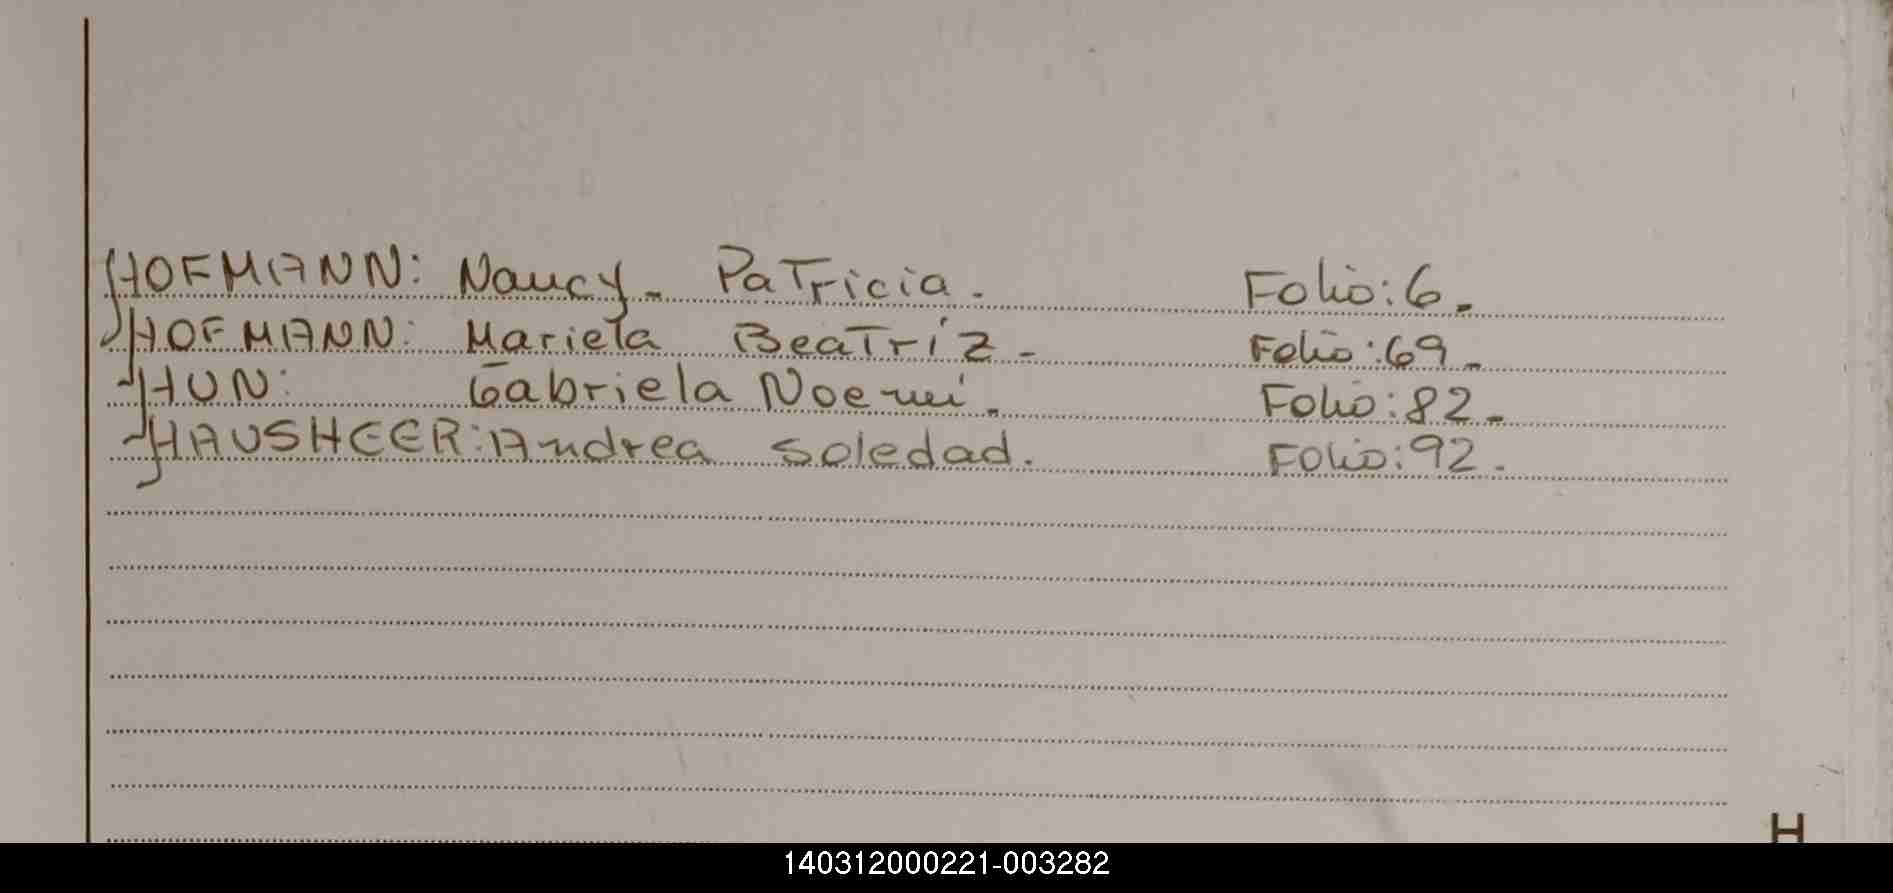 HOFMANN: Nancy - Patricia. Folio: 6.
HOFMANN: Mariela Beatríz - Folio: 69.
HUN: Gabriela Noemí. Folio: 82.
HAUSHEER: Andrea Soledad. Folio: 92.
H
140312000221-003282